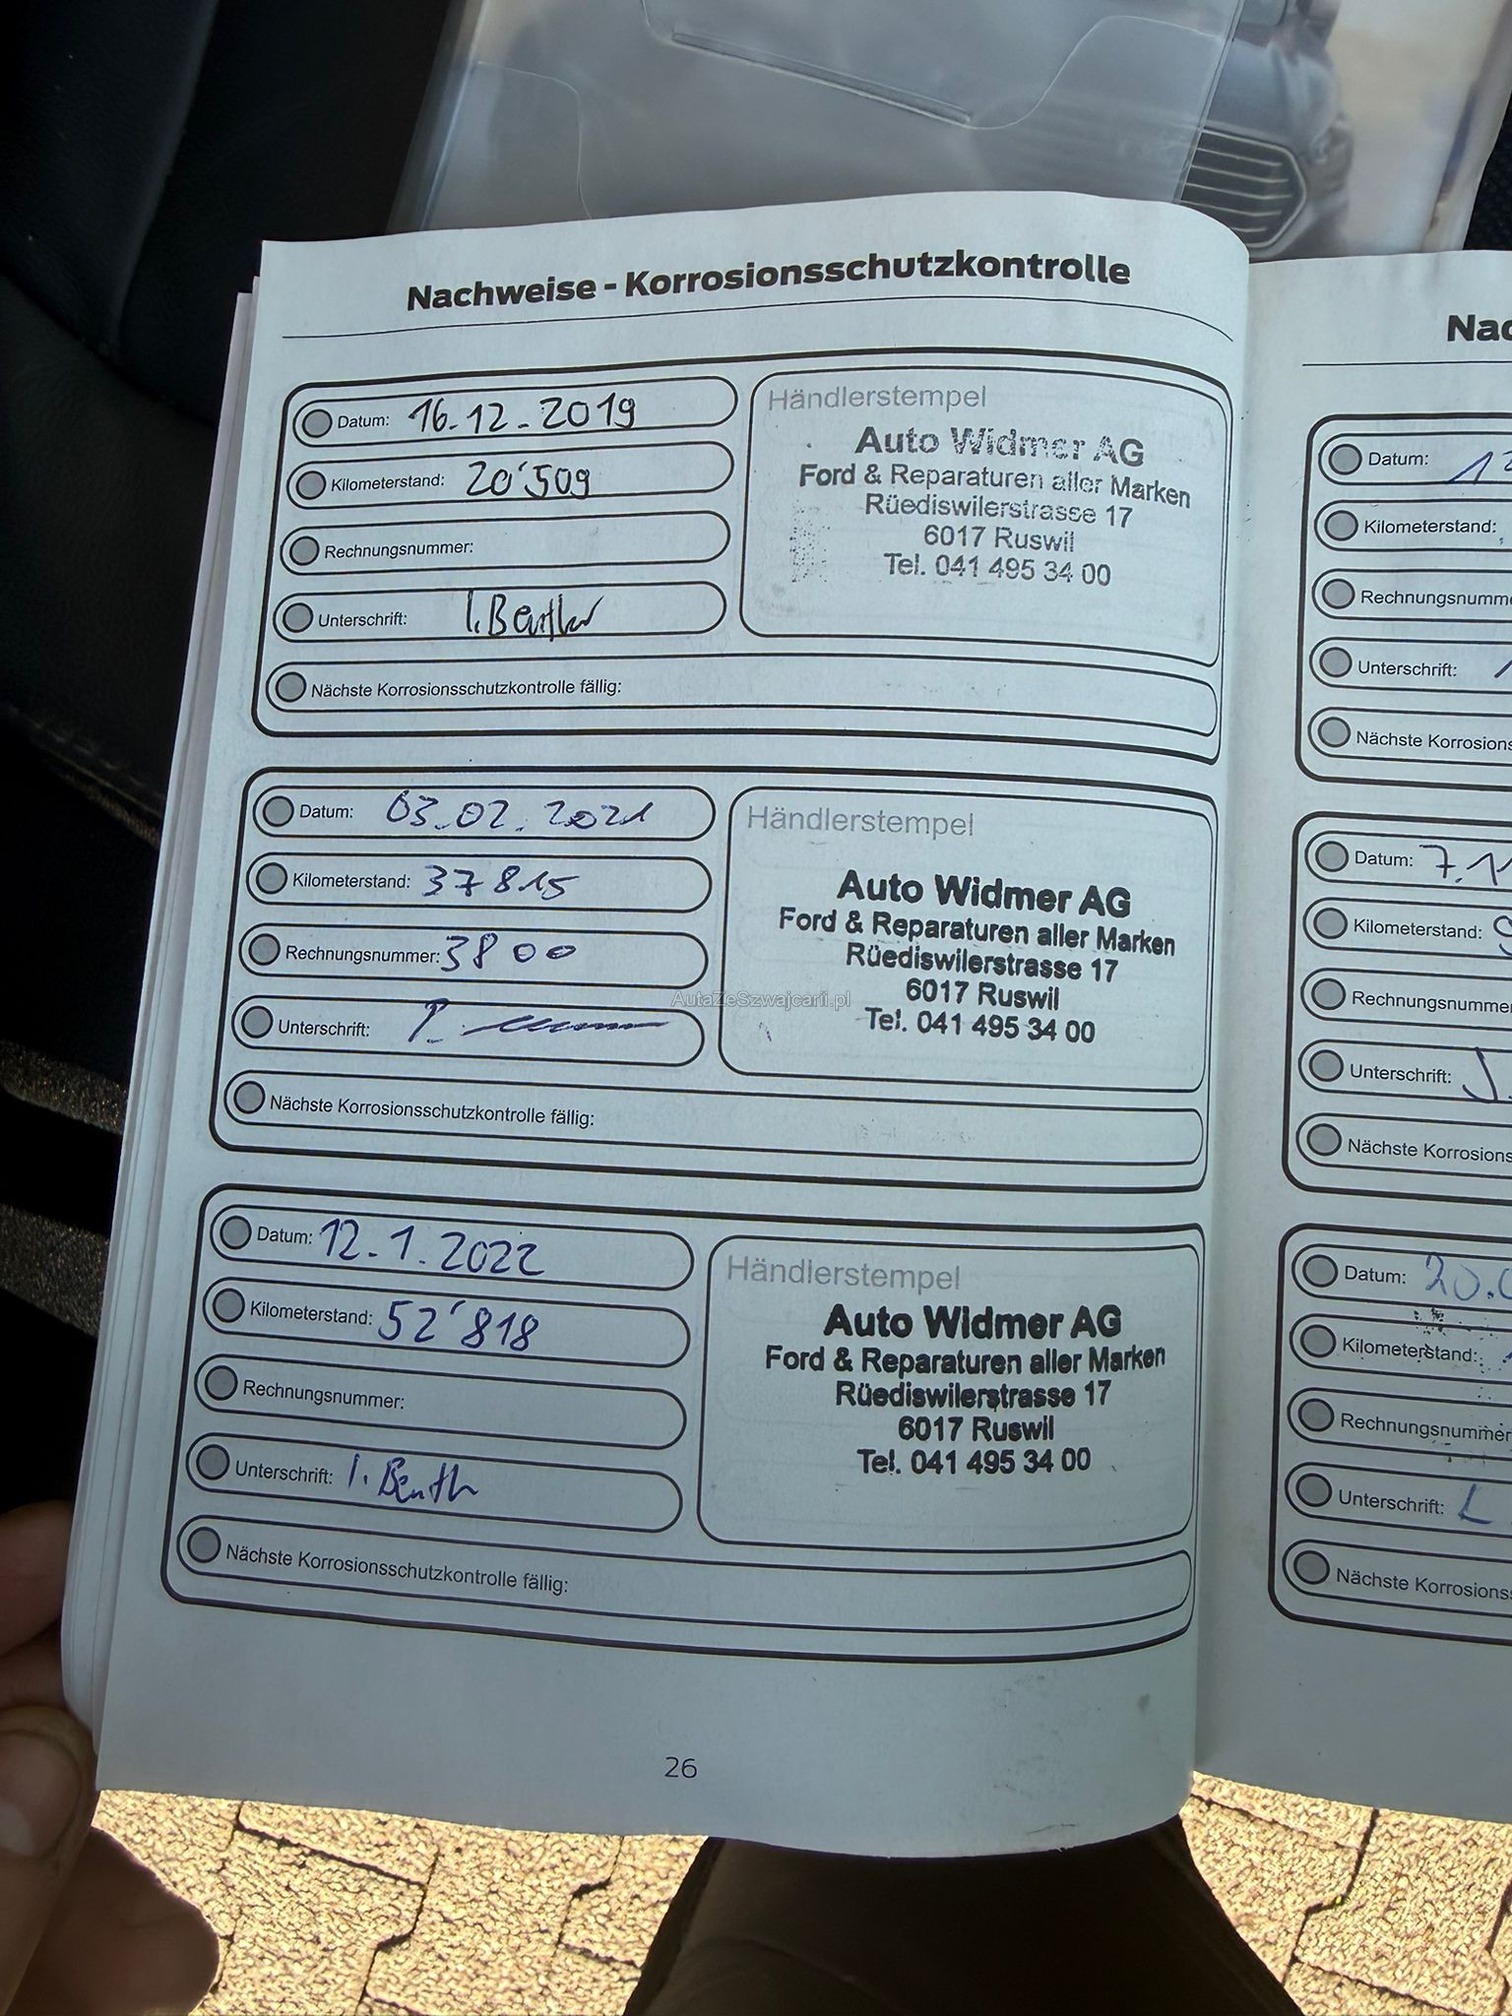 Nachweise - Korrosionsschutzkontrolle
Datum: 16.12.2019
Kilometerstand: 20'509
Rechnungsnummer:
Unterschrift:
Nächste Korrosionsschutzkontrolle fällig:
Händlerstempel
Auto Widmer AG
Ford & Reparaturen aller Marken
Rüediswilerstrasse 17
6017 Ruswil
Tel. 041 495 34 00
Datum: 03.02.2021
Kilometerstand: 37815
Rechnungsnummer: 3800
Unterschrift:
Nächste Korrosionsschutzkontrolle fällig:
Händlerstempel
Auto Widmer AG
Ford & Reparaturen aller Marken
Rüediswilerstrasse 17
6017 Ruswil
Tel. 041 495 34 00
AutaZeSzwajcarii.pl
Datum: 12.1.2022
Kilometerstand: 52'818
Rechnungsnummer:
Unterschrift:
Nächste Korrosionsschutzkontrolle fällig:
Händlerstempel
Auto Widmer AG
Ford & Reparaturen aller Marken
Rüediswilerstrasse 17
6017 Ruswil
Tel. 041 495 34 00
26
Nac
Datum:
Kilometerstand:
Rechnungsnumme
Unterschrift:
Nächste Korrosions
Datum: 7.1
Kilometerstand:
Rechnungsnummer
Unterschrift:
Nächste Korrosions
Datum: 20.
Kilometerstand:
Rechnungsnummer
Unterschrift: L
Nächste Korrosions